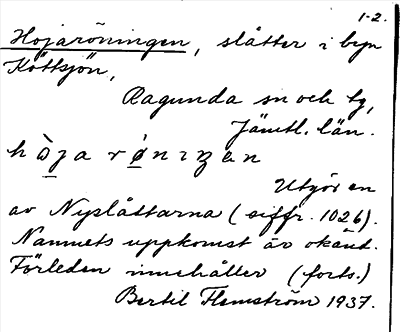 1-2.
Hojaröningen, slåtter i byn
Köttsjön,
Ragunda sn och tg,
Jämtl. län.
h ò̲j a r ø̲ n ɪ ŋ e n
Utgör en
av Nyslåttarna (siffr. 1026).
Namnets uppkomst är okänd.
Förleden innehåller (forts.)
Bertil Flemström 1937.